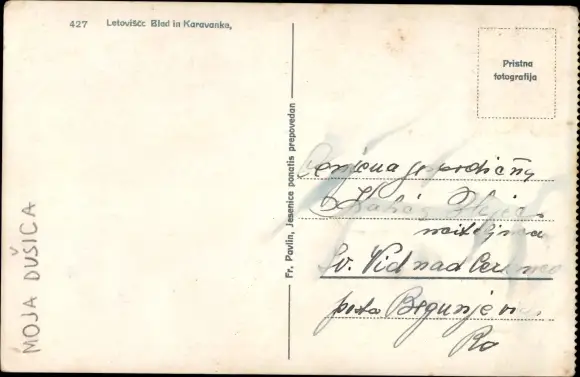 427 Letovišče Bled in Karavanke,
Pristna
fotografija
Fr. Pavlin, Jesenice ponatis prepovedan
Cenjena gospodična
učiteljica
Sv. Vid nad Cerknico
pošta Begunje
MOJA DUŠICA